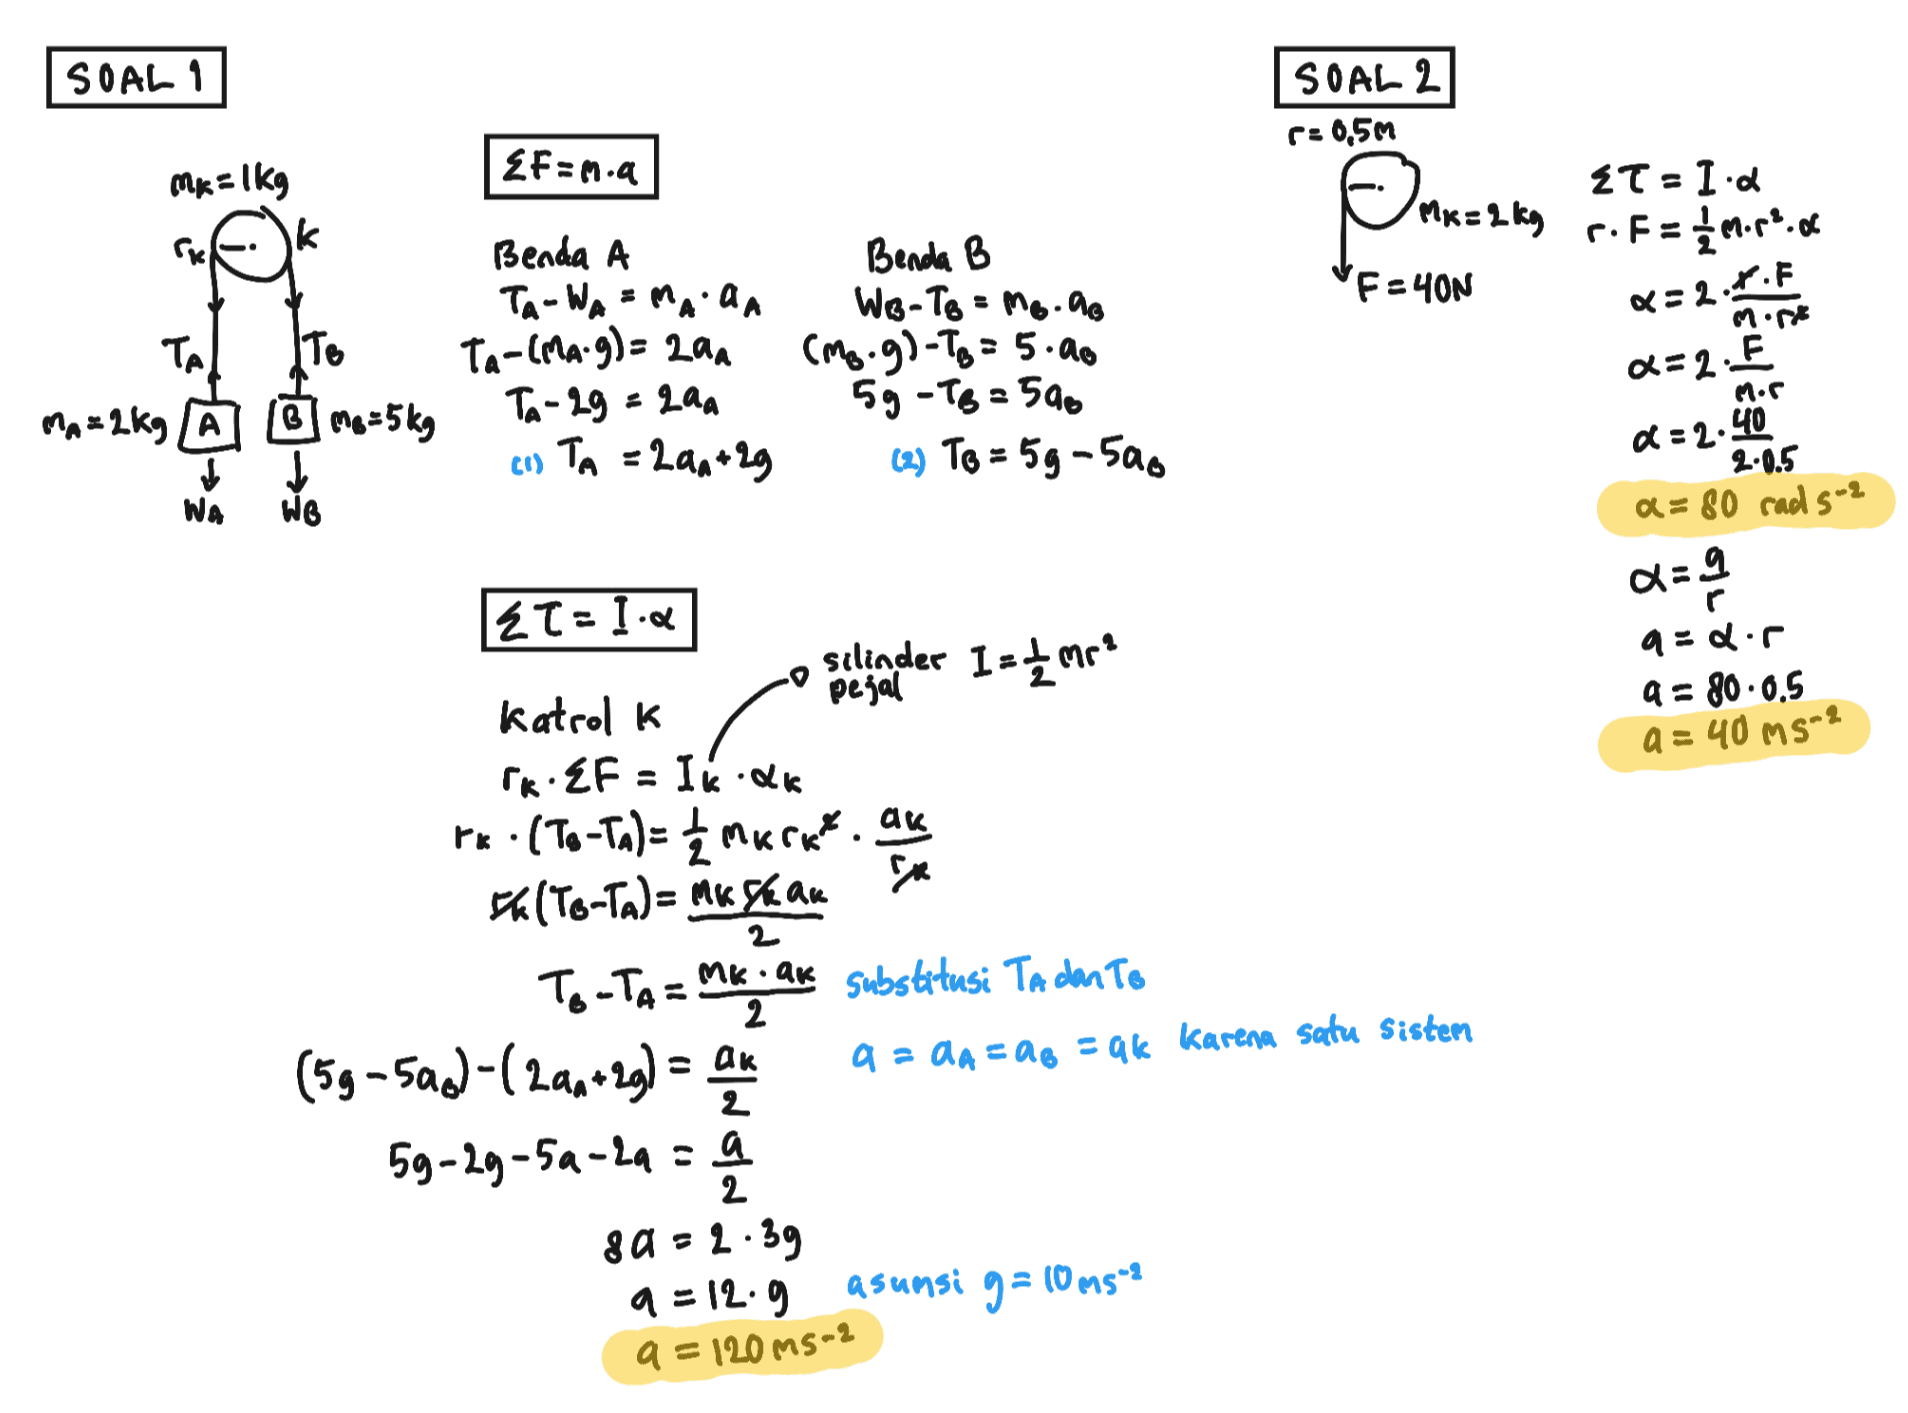 SOAL 1
mK = 1kg
rK
K
TA
TB
mA = 2kg
A
B
mB = 5kg
WA
WB
ΣF = m·a
Benda A
TA - WA = mA · aA
TA - (mA·g) = 2aA
TA - 2g = 2aA
(1) TA = 2aA + 2g
Benda B
WB - TB = mB · aB
(mB·g) - TB = 5 · aB
5g - TB = 5aB
(2) TB = 5g - 5aB
Στ = I·α
silinder pejal I = 1/2 mr²
Katrol K
rK · ΣF = IK · αK
rK · (TB - TA) = 1/2 mK rK² · aK/rK
rK (TB - TA) = mK rK aK / 2
TB - TA = mK · aK / 2
substitusi TA dan TB
(5g - 5aB) - (2aA + 2g) = aK/2
a = aA = aB = aK karena satu sistem
5g - 2g - 5a - 2a = a/2
8a = 2 · 3g
a = 12 · g
asumsi g = 10 ms⁻²
a = 120 ms⁻²
SOAL 2
r = 0,5m
mK = 2kg
F = 40N
Στ = I · α
r · F = 1/2 m · r² · α
α = 2 · r · F / m · r²
α = 2 · F / m · r
α = 2 · 40 / 2 · 0.5
α = 80 rad s⁻²
α = a/r
a = α · r
a = 80 · 0.5
a = 40 ms⁻²